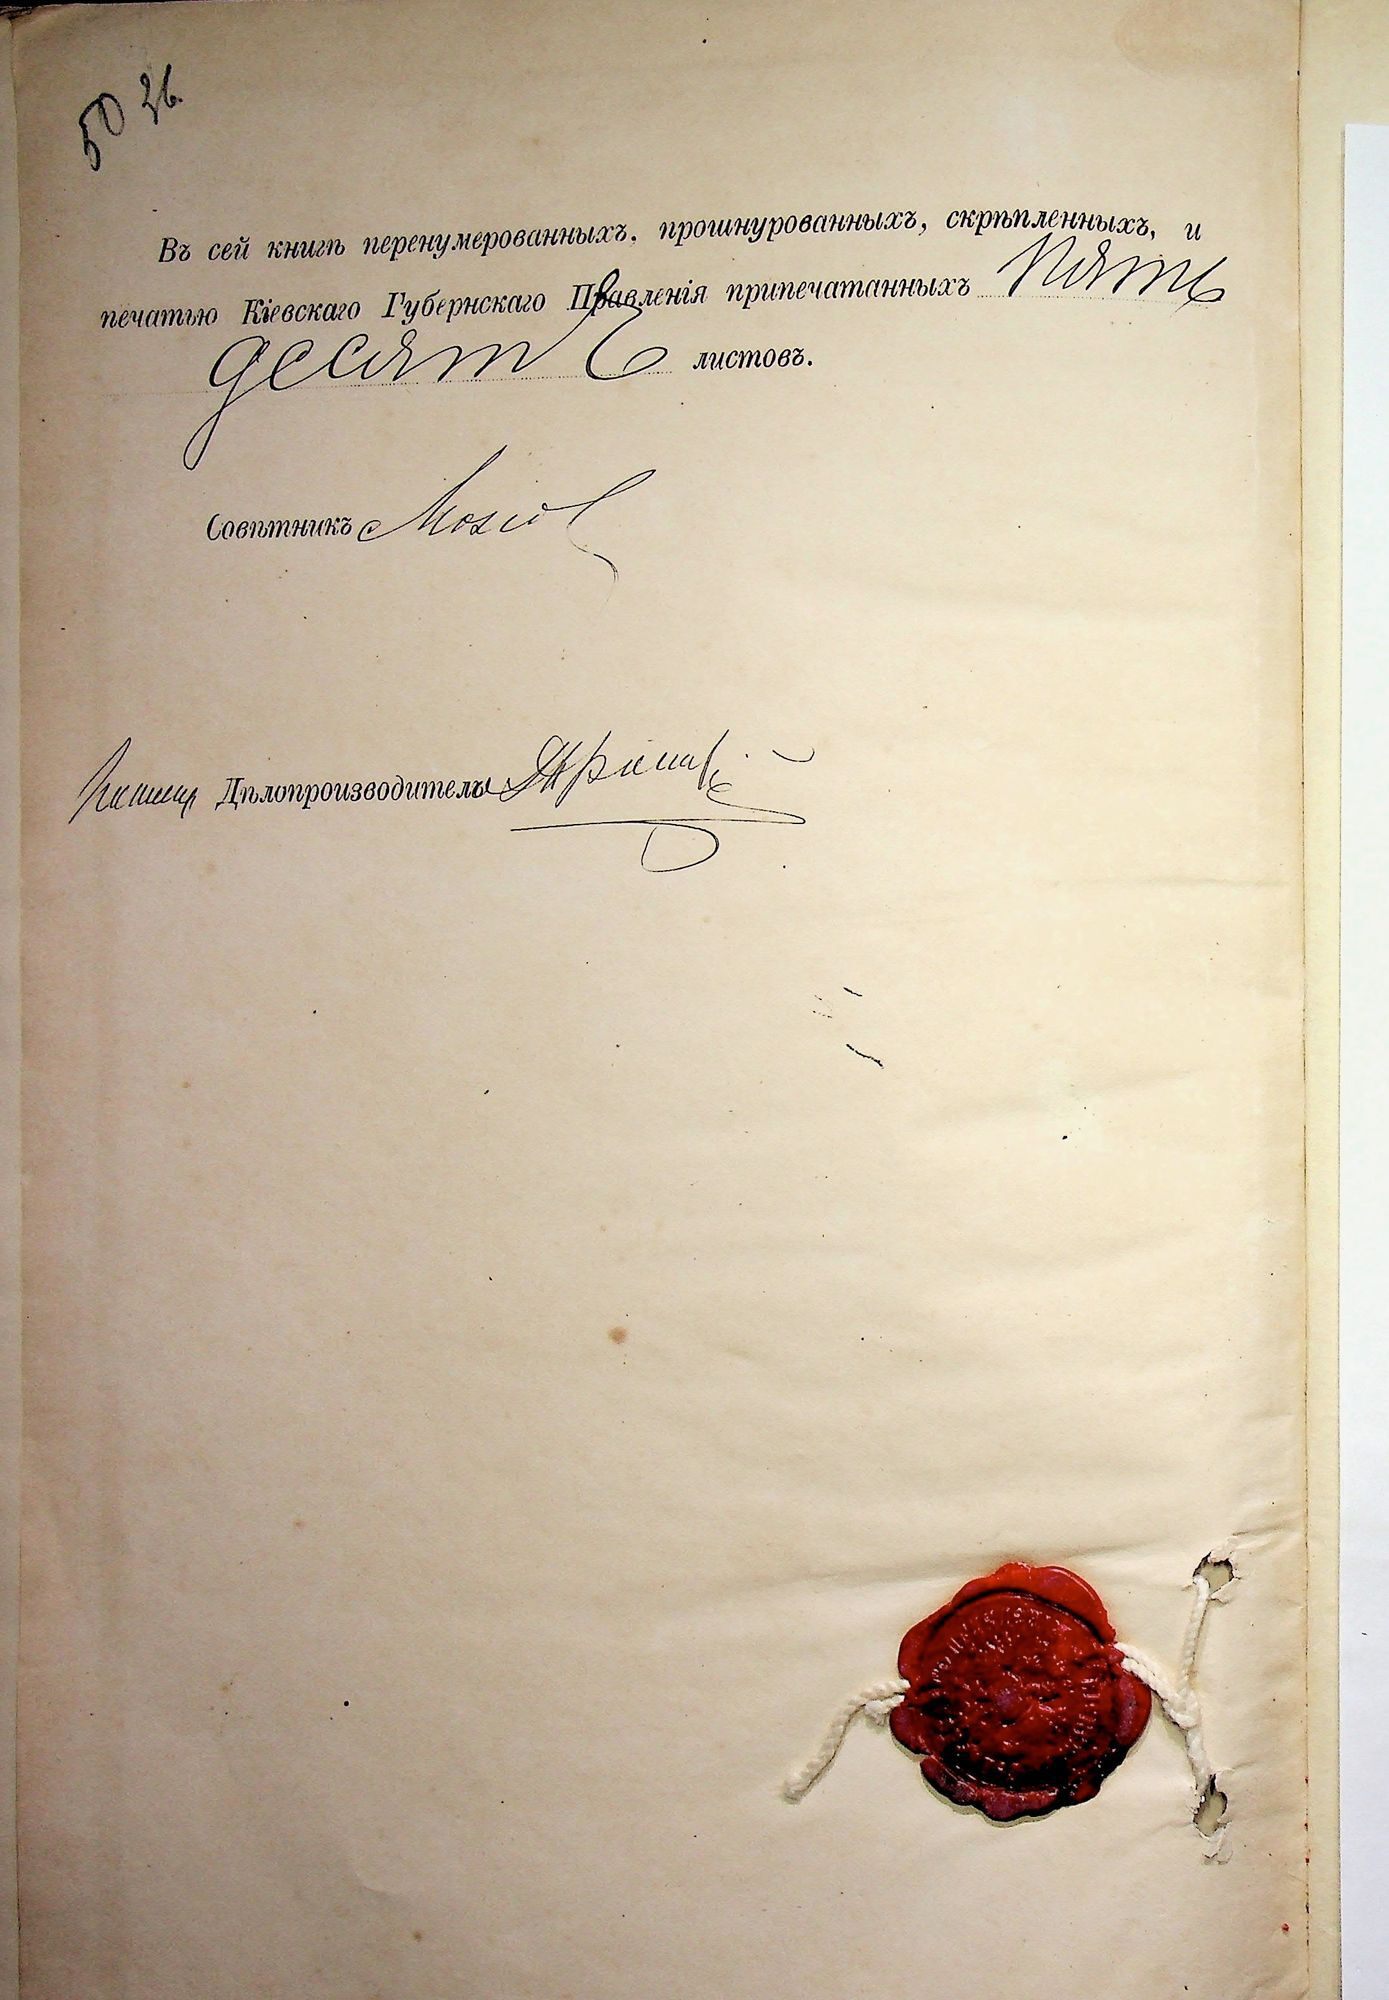 50
Въ сей книгѣ перенумерованныхъ, прошнурованныхъ, скрѣпленныхъ, и
печатью Кіевскаго Губернскаго Правленія припечатанныхъ пять
десятъ листовъ.
Совѣтникъ
Дѣлопроизводитель